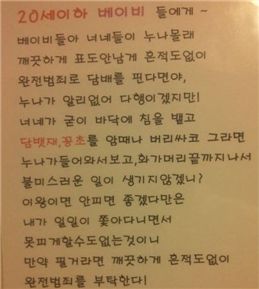 20세이하 베이비 들에게 ~
베이비들아 너네들이 누나몰래
깨끗하게 표도안남게 흔적도없이
완전범죄로 담배를 핀다면야,
누나가 알리없어 다행이겠지만!
너네가 굳이 바닥에 침을 뱉고
담뱃재,꽁초를 암때나 버리싸코 그라믄
누나가들어와서보고,화가머리끝까지나서
불미스러운 일이 생기지않겠니?
이왕이면 안피면 좋겠다만은
내가 일일이 쫓아다니면서
못피게할수도없는것이니
만약 필거라면 깨끗하게 흔적도없이
완전범죄를 부탁한다!